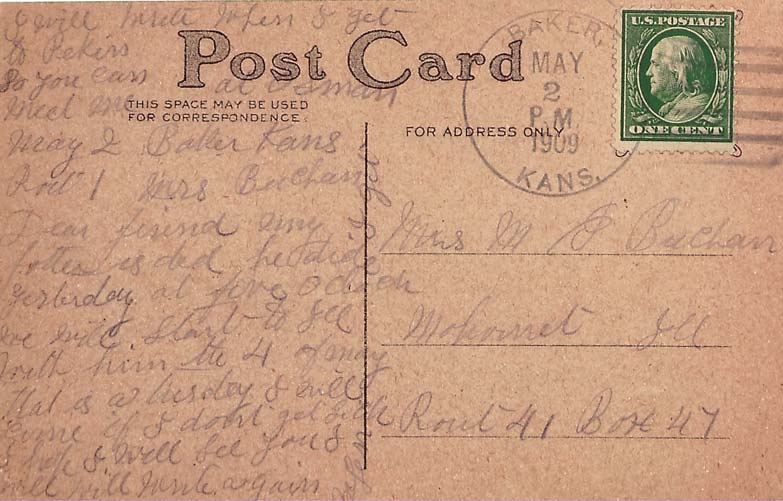 I will write when I get
to Pekins
So you can at Osman
Meet me
Post Card
THIS SPACE MAY BE USED
FOR CORRESPONDENCE.
FOR ADDRESS ONLY
BAKER,
MAY
2
P.M.
1909
KANS.
U.S. POSTAGE
ONE CENT
May 2 Baker Kans
Rout 1 Mrs Buchan
Dear friend my
is ded he dide
yesterday at five o clock
we will start to
with him the 4 of may
that is a tusday I will
come if I dont get sick
I hope I will see you
will write again
Mrs M P Buchan
Mohomet Ill
Rout 41 Box 47